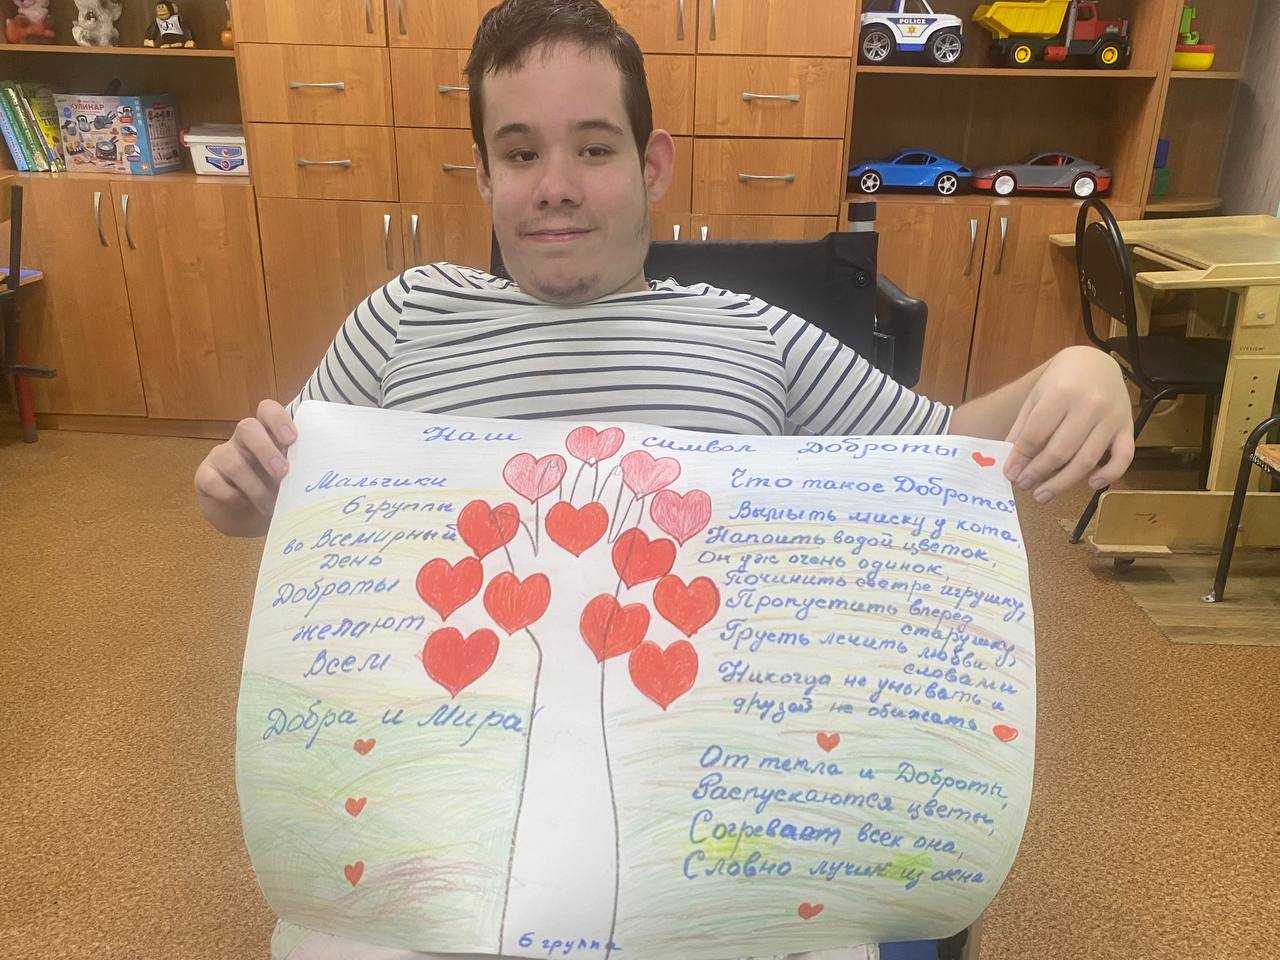 POLICE
КУЛИНАР
Наш символ Доброты
Мальчики
6 группы
во Всемирный
День
Доброты
желают
Всем
Добра и Мира!
Что такое Доброта?
Вымыть миску у кота,
Напоить водой цветок,
Он уж очень одинок,
Починить сестре игрушку,
Пропустить вперед
старушку,
Грусть лечить любви
словами
Никогда не унывать и
друзей не обижать
От тепла и Доброты,
Распускаются цветы,
Согревает всех она,
Словно лучик из окна.
6 группа